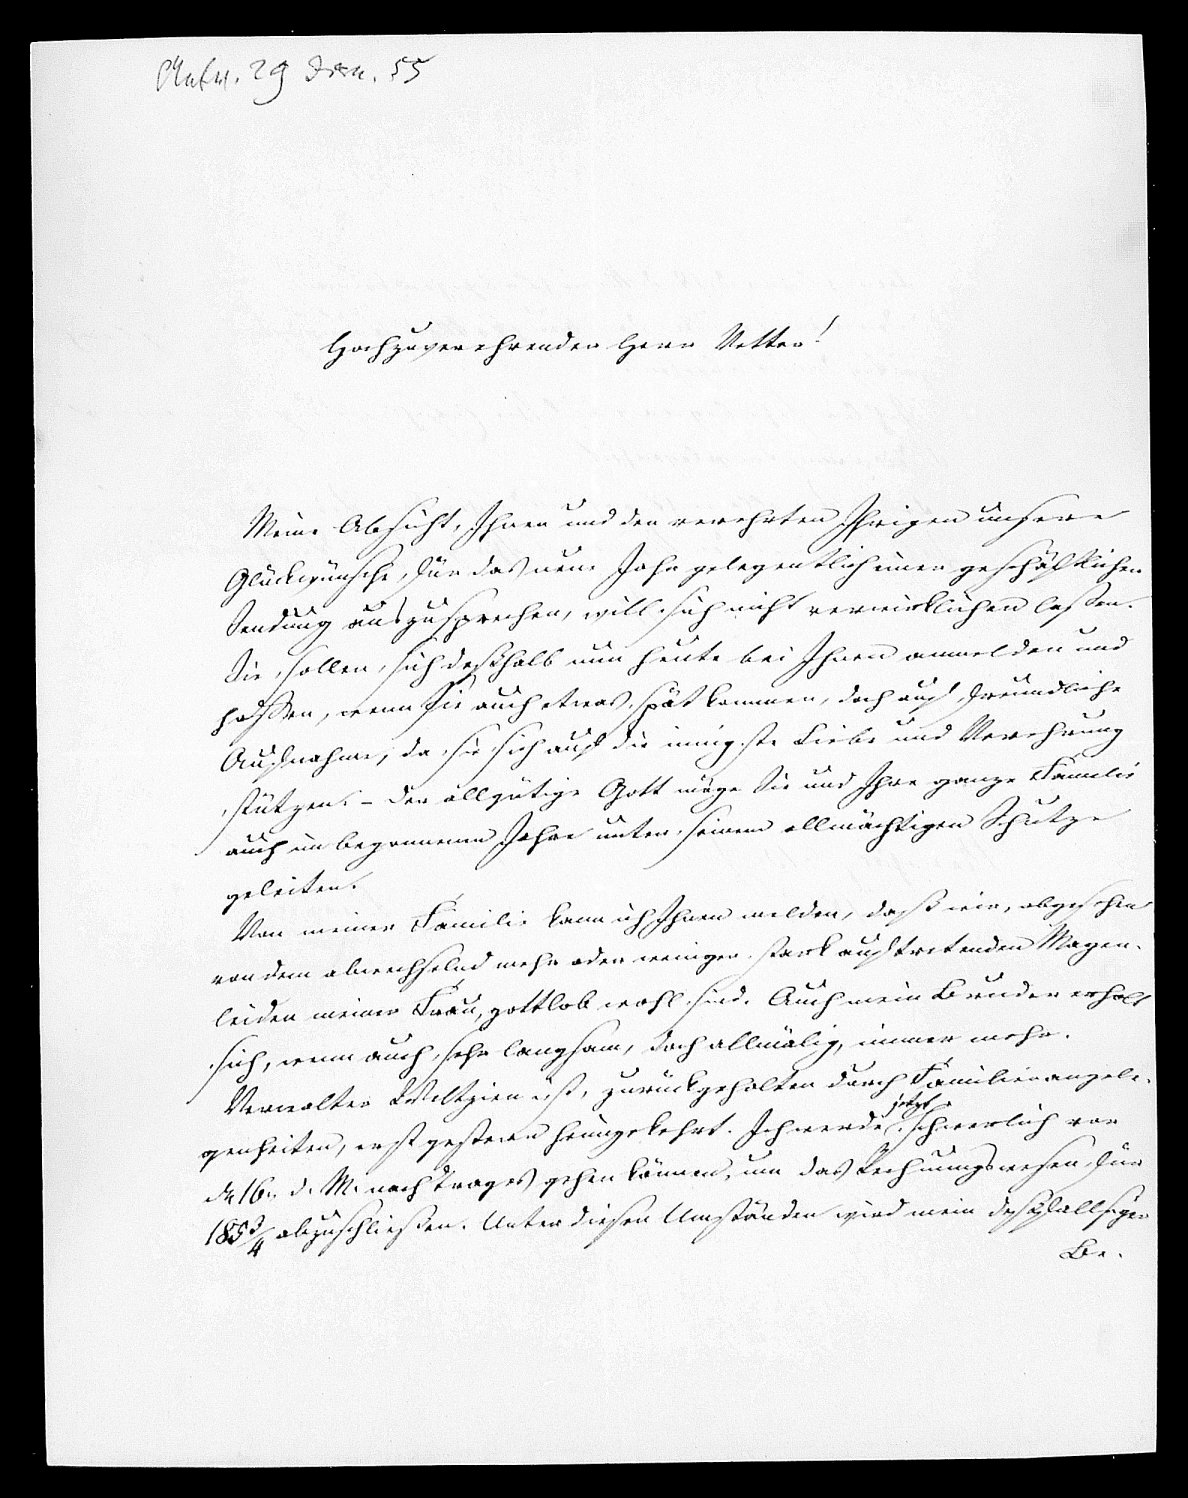 Antw. 29 Jan. 55
Hochzuverehrender Herr Vetter!
Meine Absicht, Ihnen und den verehrten Ihrigen unsere
Glückwünsche für das neue Jahr gelegentlich einer geschäftlichen
Sendung auszusprechen, will sich nicht verwirklichen laßen.
Sie sollen sich deßhalb nun heute bei Ihnen anmelden und
hoffen, wenn Sie auch etwas spät kommen, doch auf freundliche
Aufnahme, da sie sich auf die innigste Liebe und Verehrung
stützen. – Der allgütige Gott möge Sie und Ihre ganze Familie
auch im begonnenen Jahre unter seinem allmächtigen Schutze
geleiten.
Von meiner Familie kann ich Ihnen melden, daß wir, abgesehen
von dem abwechselnd mehr oder weniger stark auftretenden Magen-
leiden meiner Frau, gottlob wohl sind. Auch mein Bruder erholt
sich, wenn auch sehr langsam, doch allmälig, immer mehr.
Verwalter Weltzien ist, zurückgehalten durch Familienangele-
genheiten, erst gestern heimgekehrt. Ich werde jetzt schwerlich vor
d. 16. d. M. nach Trages gehen können, um das Rechnungswesen für
1853/4 abzuschließen. Unter diesen Umständen wird mein deßfallsiger
Be-